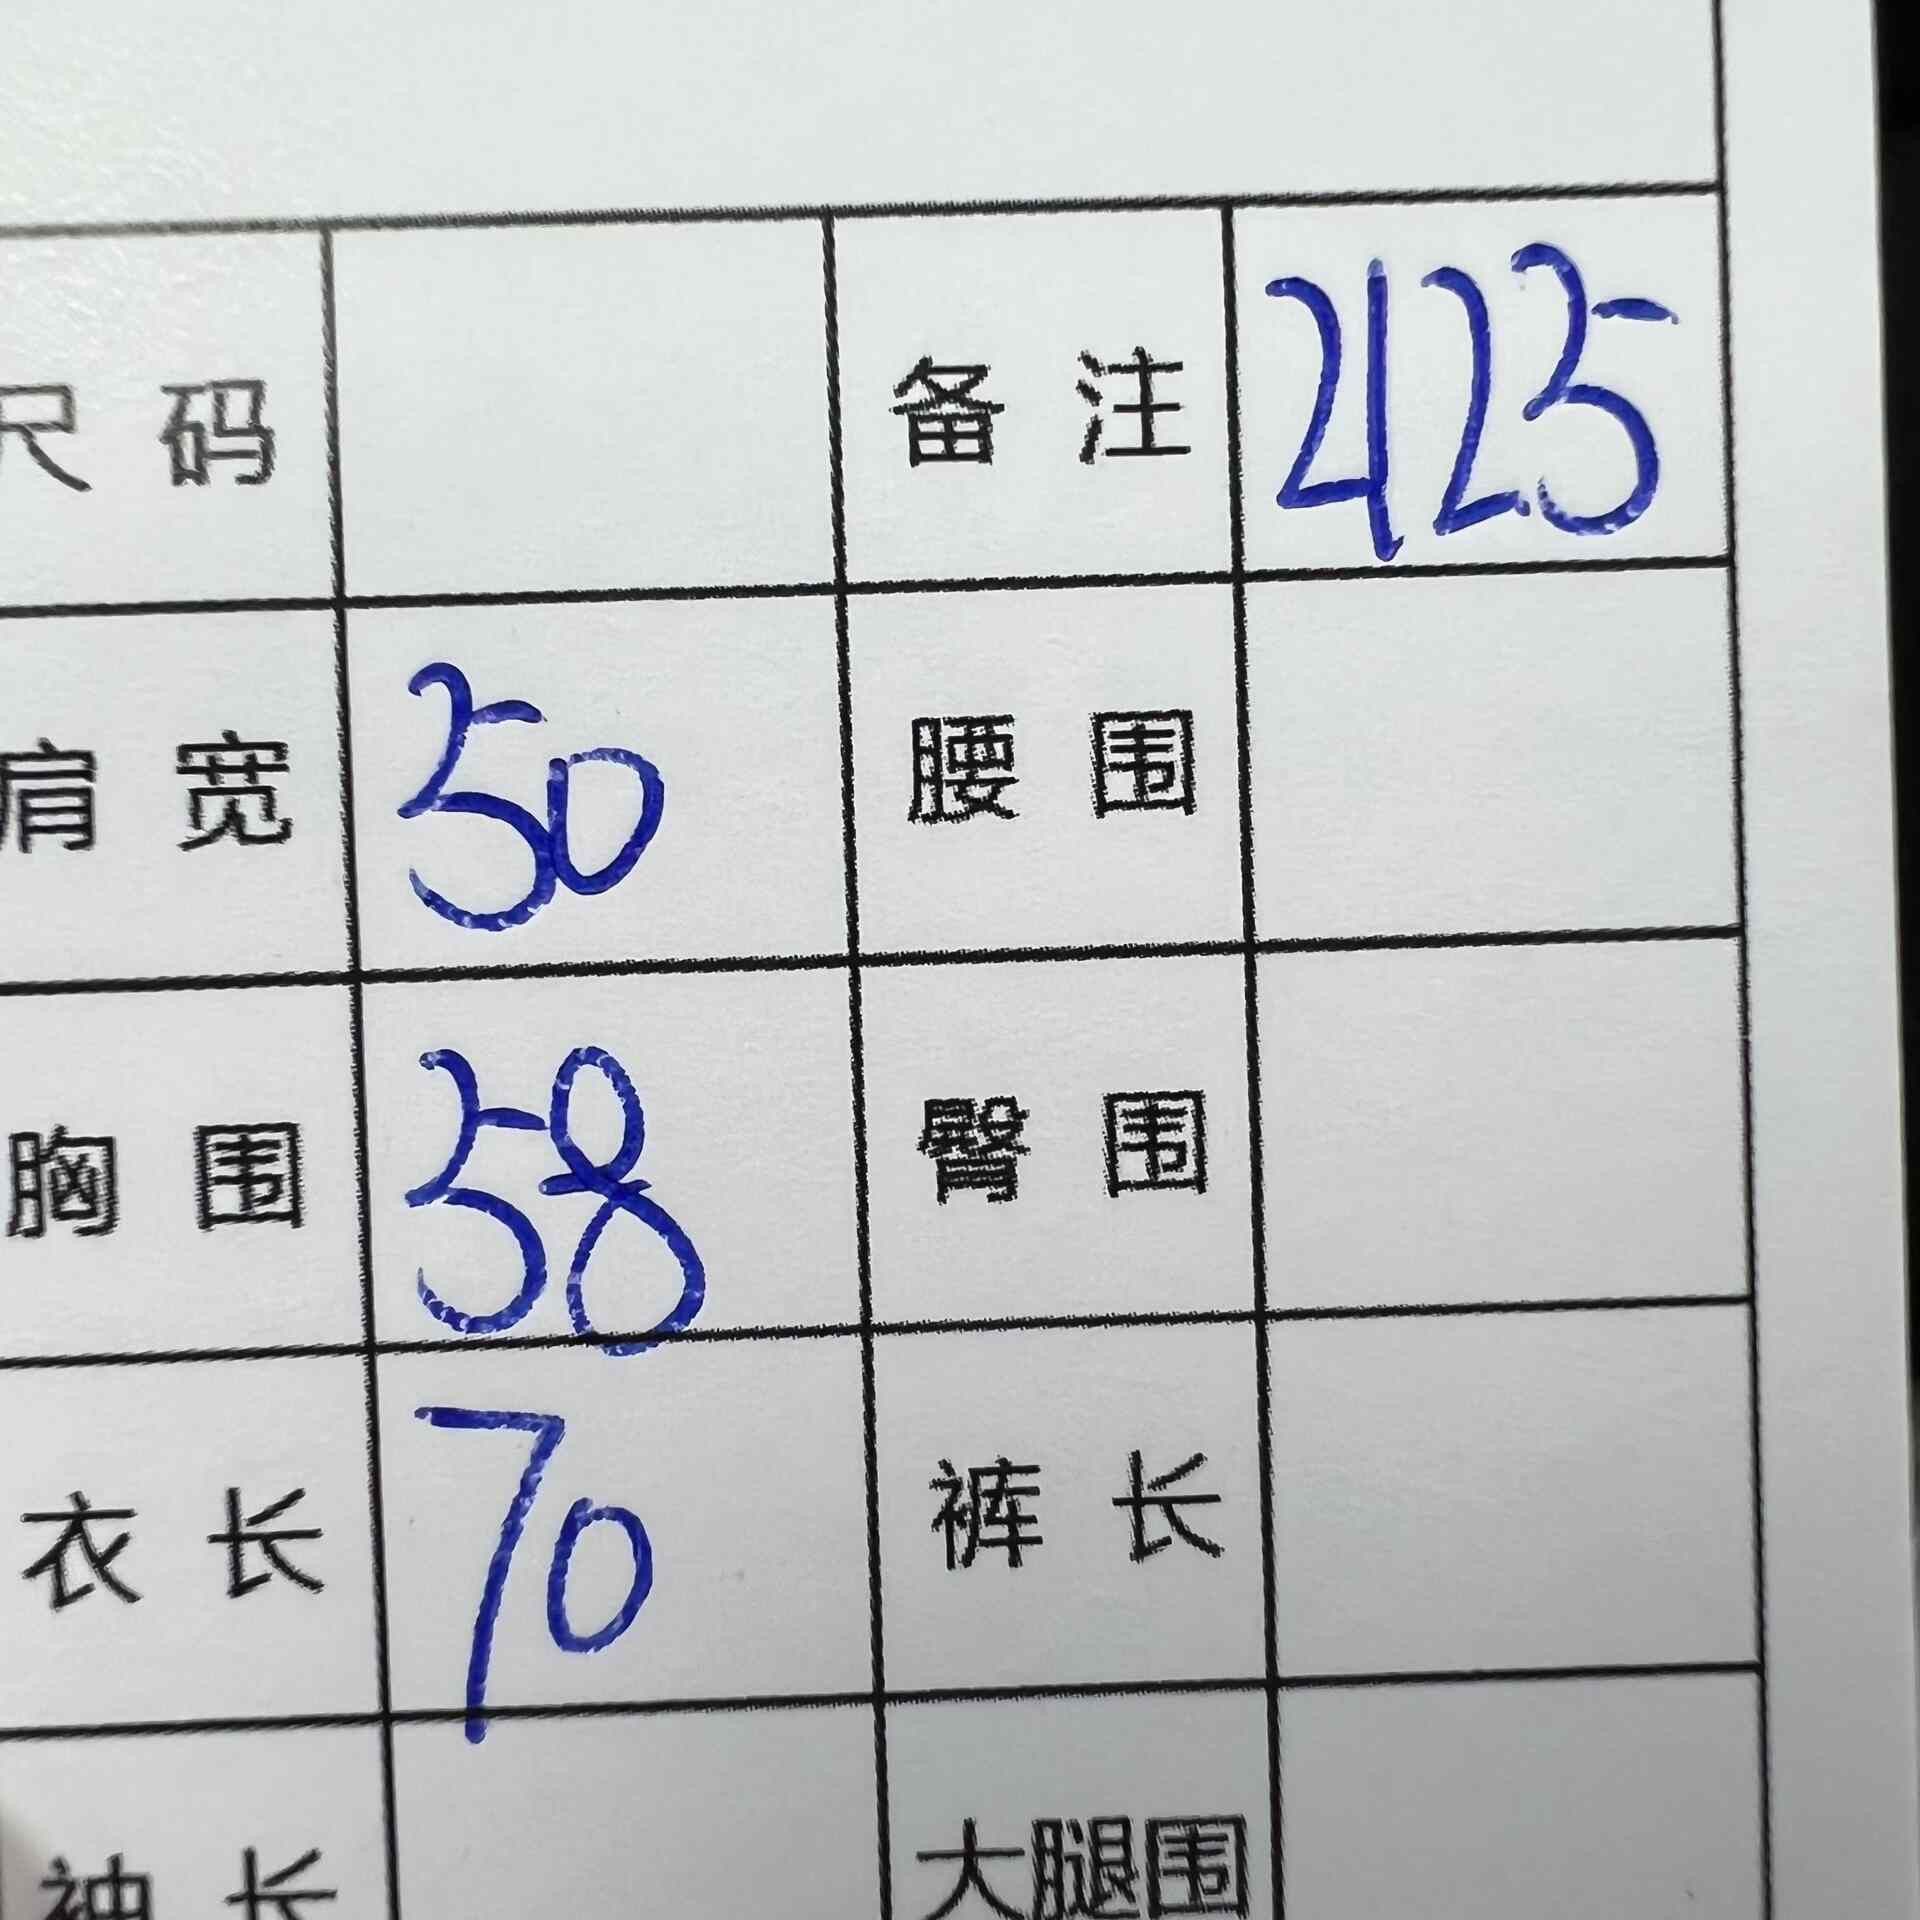 尺 码 备 注 2125
肩 宽 50 腰 围
胸 围 58 臀 围
衣 长 70 裤 长
袖 长 大腿围